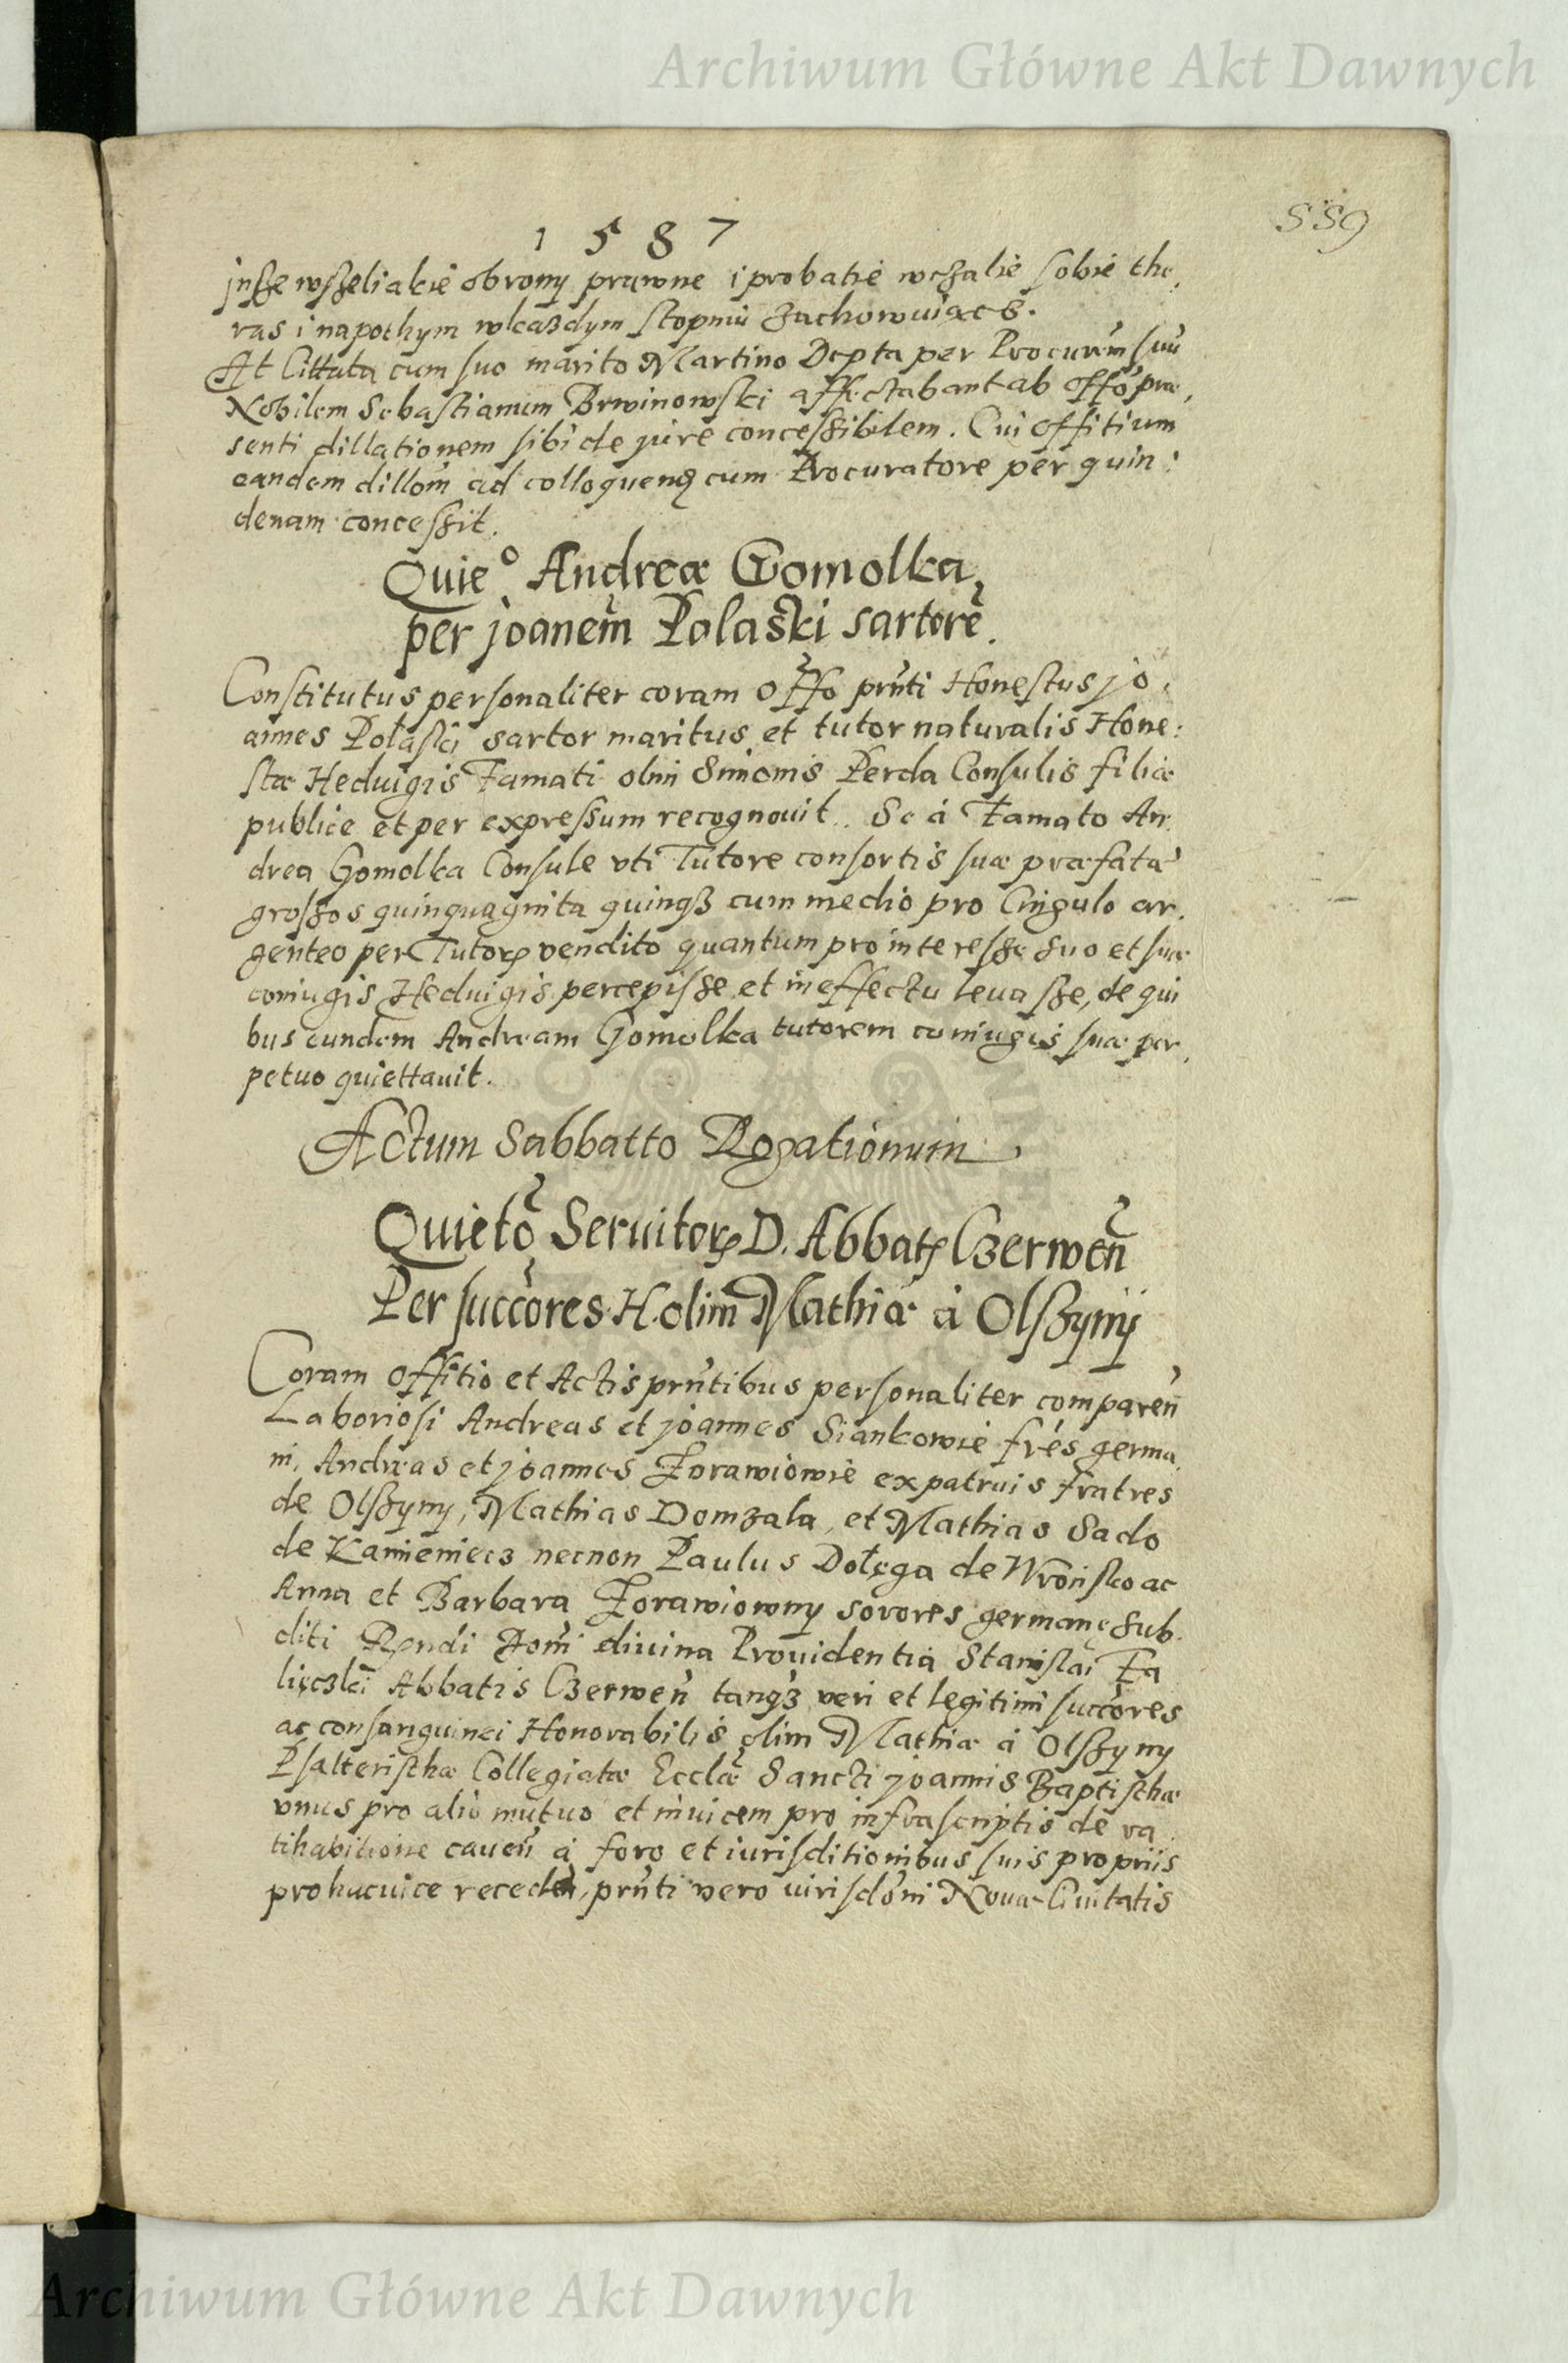 Archiwum Główne Akt Dawnych
559
1 5 8 7
jnsze wszeliakie obrony prawne i probatie wczalie sobie the,
ras i napothym wkazdym stopniu zachowuiącz.
At Cittata cum suo marito Martino Depta per Procurēm suū
Nobilem Sebastianum Brwinowski affectabant ab offō præ,
senti dillationem sibi de jure concessibilem. Cui offitium
eandem dillōm ad colloquenđ cum Procuratore per quin:
denam concessit.
Quieᵒ Andreæ Gomolka,
per joanem̃ Polaski sartorē.
Constitutus personaliter coram offō prñti Honestus jo,
annes Polaski sartor maritus et tutor naturalis Hone:
stæ Heduigis Famati olim Simonis Perda Consulis filiæ
publice et per expressum recognouit. Se à Famato An:
drea Gomolka Consule vti Tutore consortis suæ præfatæ
grossos quinquaginta quinqʒ cum medio pro Cingulo ar,
genteo per Tutorꝭ vendito quantum pro interesse suo et suæ
coniugis Heduigis percepisse et in effectu leuasse, de qui
bus eundem Andream Gomolka tutorem coniugis suæ per,
petuo quiettauit.
Actum Sabbatto Rogationum
Quietō Seruitorꝭ D. Abbatꝭ Czerwen̄
Per succōres H. olim Mathiæ à Olszyny
Coram offitio et Actis prñtibus personaliter comparen̄
Laboriosi Andreas et joannes Siankowie frēs germa,
ni, Andreas et joannes Zorawiowie ex patruis fratres
de Olszyny, Mathias Domzala, et Mathias Sado
de Kamieniecz necnon Paulus Dołęga de Wrońsko ac
Anna et Barbara Zorawiowny sorores germanę Sub,
diti Rēndi Dom̄i diuina Prouidentia Stanislai Fa
lięczki Abbatis Czerwen̄ tanqʒ veri et legitimi succōres
ac consanguinei Honorabilis olim Mathiæ à Olszyny
Psalteristhæ Collegiatæ Ecclæ Sancti joannis Baptisthæ
vnus pro alio mutuo et inuicem pro infrascriptis de ra
tihabitione cauen̄ à foro et iurisditionibus suis proprijs
pro hac vice receden̄, prñti vero iurisdōni Nouæ Ciuitatis
Archiwum Główne Akt Dawnych